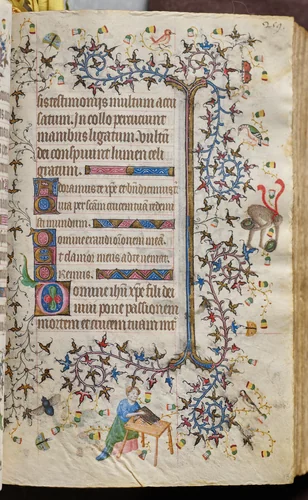 sis testimonijs multum accu
satum. In collo percutiunt
manibus ligatum. Vultū
dei conspuunt lumen celi
gratum.
Adoramus te xp̄e et bn̄dicimus t̄
quia per sanctam crucem tuam redemi
sti mundum.
Domine exaudi orationē meā
Et clamor meus ad te veniat.
Oremus.
Domine ihū xp̄e fili dei
viui pone passionem
mortem et crucem tuam int